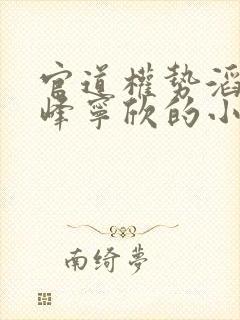 官道權勢滔
峰寧欣的小
南绮夢